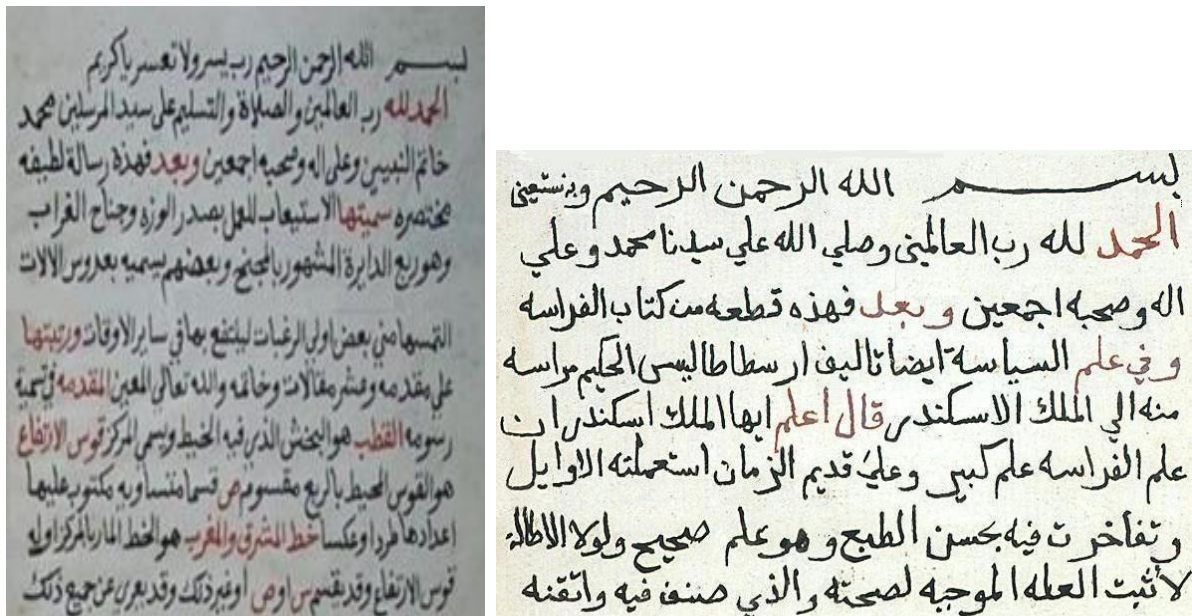 بسم الله الرحمن الرحيم رب يسر ولا تعسر يا كريم
الحمد لله رب العالمين والصلاة والتسليم على سيد المرسلين محمد
خاتم النبيين وعلى اله وصحبه اجمعين وبعد فهذه رسالة لطيفه
مختصره سميتها الاستيعاب للعمل بصدر الوزه وجناح الغراب
وهو ربع الدايرة المشهور بالمجنح وبعضهم يسميه بعدوس الالات
التمسها مني بعض اولي الرغبات لينتفع بها في ساير الاوقات ورتبتها
على مقدمه وعشر مقالات وخاتمه والله تعالى المعين المقدمه في تسمية
رسومه القطب هو البخش الذي فيه الخيط ويسمى المركز قوس الارتفاع
هو القوس المحيط بالربع مقسوم ص قسما متساويه مكتوب عليها
اعدادها طردا وعكسا خط المشرق والمغرب هو الخط المار بالمركز اوله
قوس الارتفاع وقد يقسم س او ص او غير ذلك وقد يعرى عن جميع ذلك
بسم الله الرحمن الرحيم وبه نستعين
الحمد لله رب العالمين وصلي الله علي سيدنا محمد وعلي
اله وصحبه اجمعين وبعد فهذه قطعه من كتاب الفراسه
وفي علم السياسة ايضا تاليف ارسطاطاليس الحكيم مراسه
منه الي الملك الاسكندر قال اعلم ايها الملك اسكندر ان
علم الفراسه علم كبير وعلي قديم الزمان استعملته الاوايل
وتفاخرت فيه بحسن الطبع وهو علم صحيح ولولا الاطالة
لأثبت العله الموجبه لصحته والذي صنف فيه واتقنه